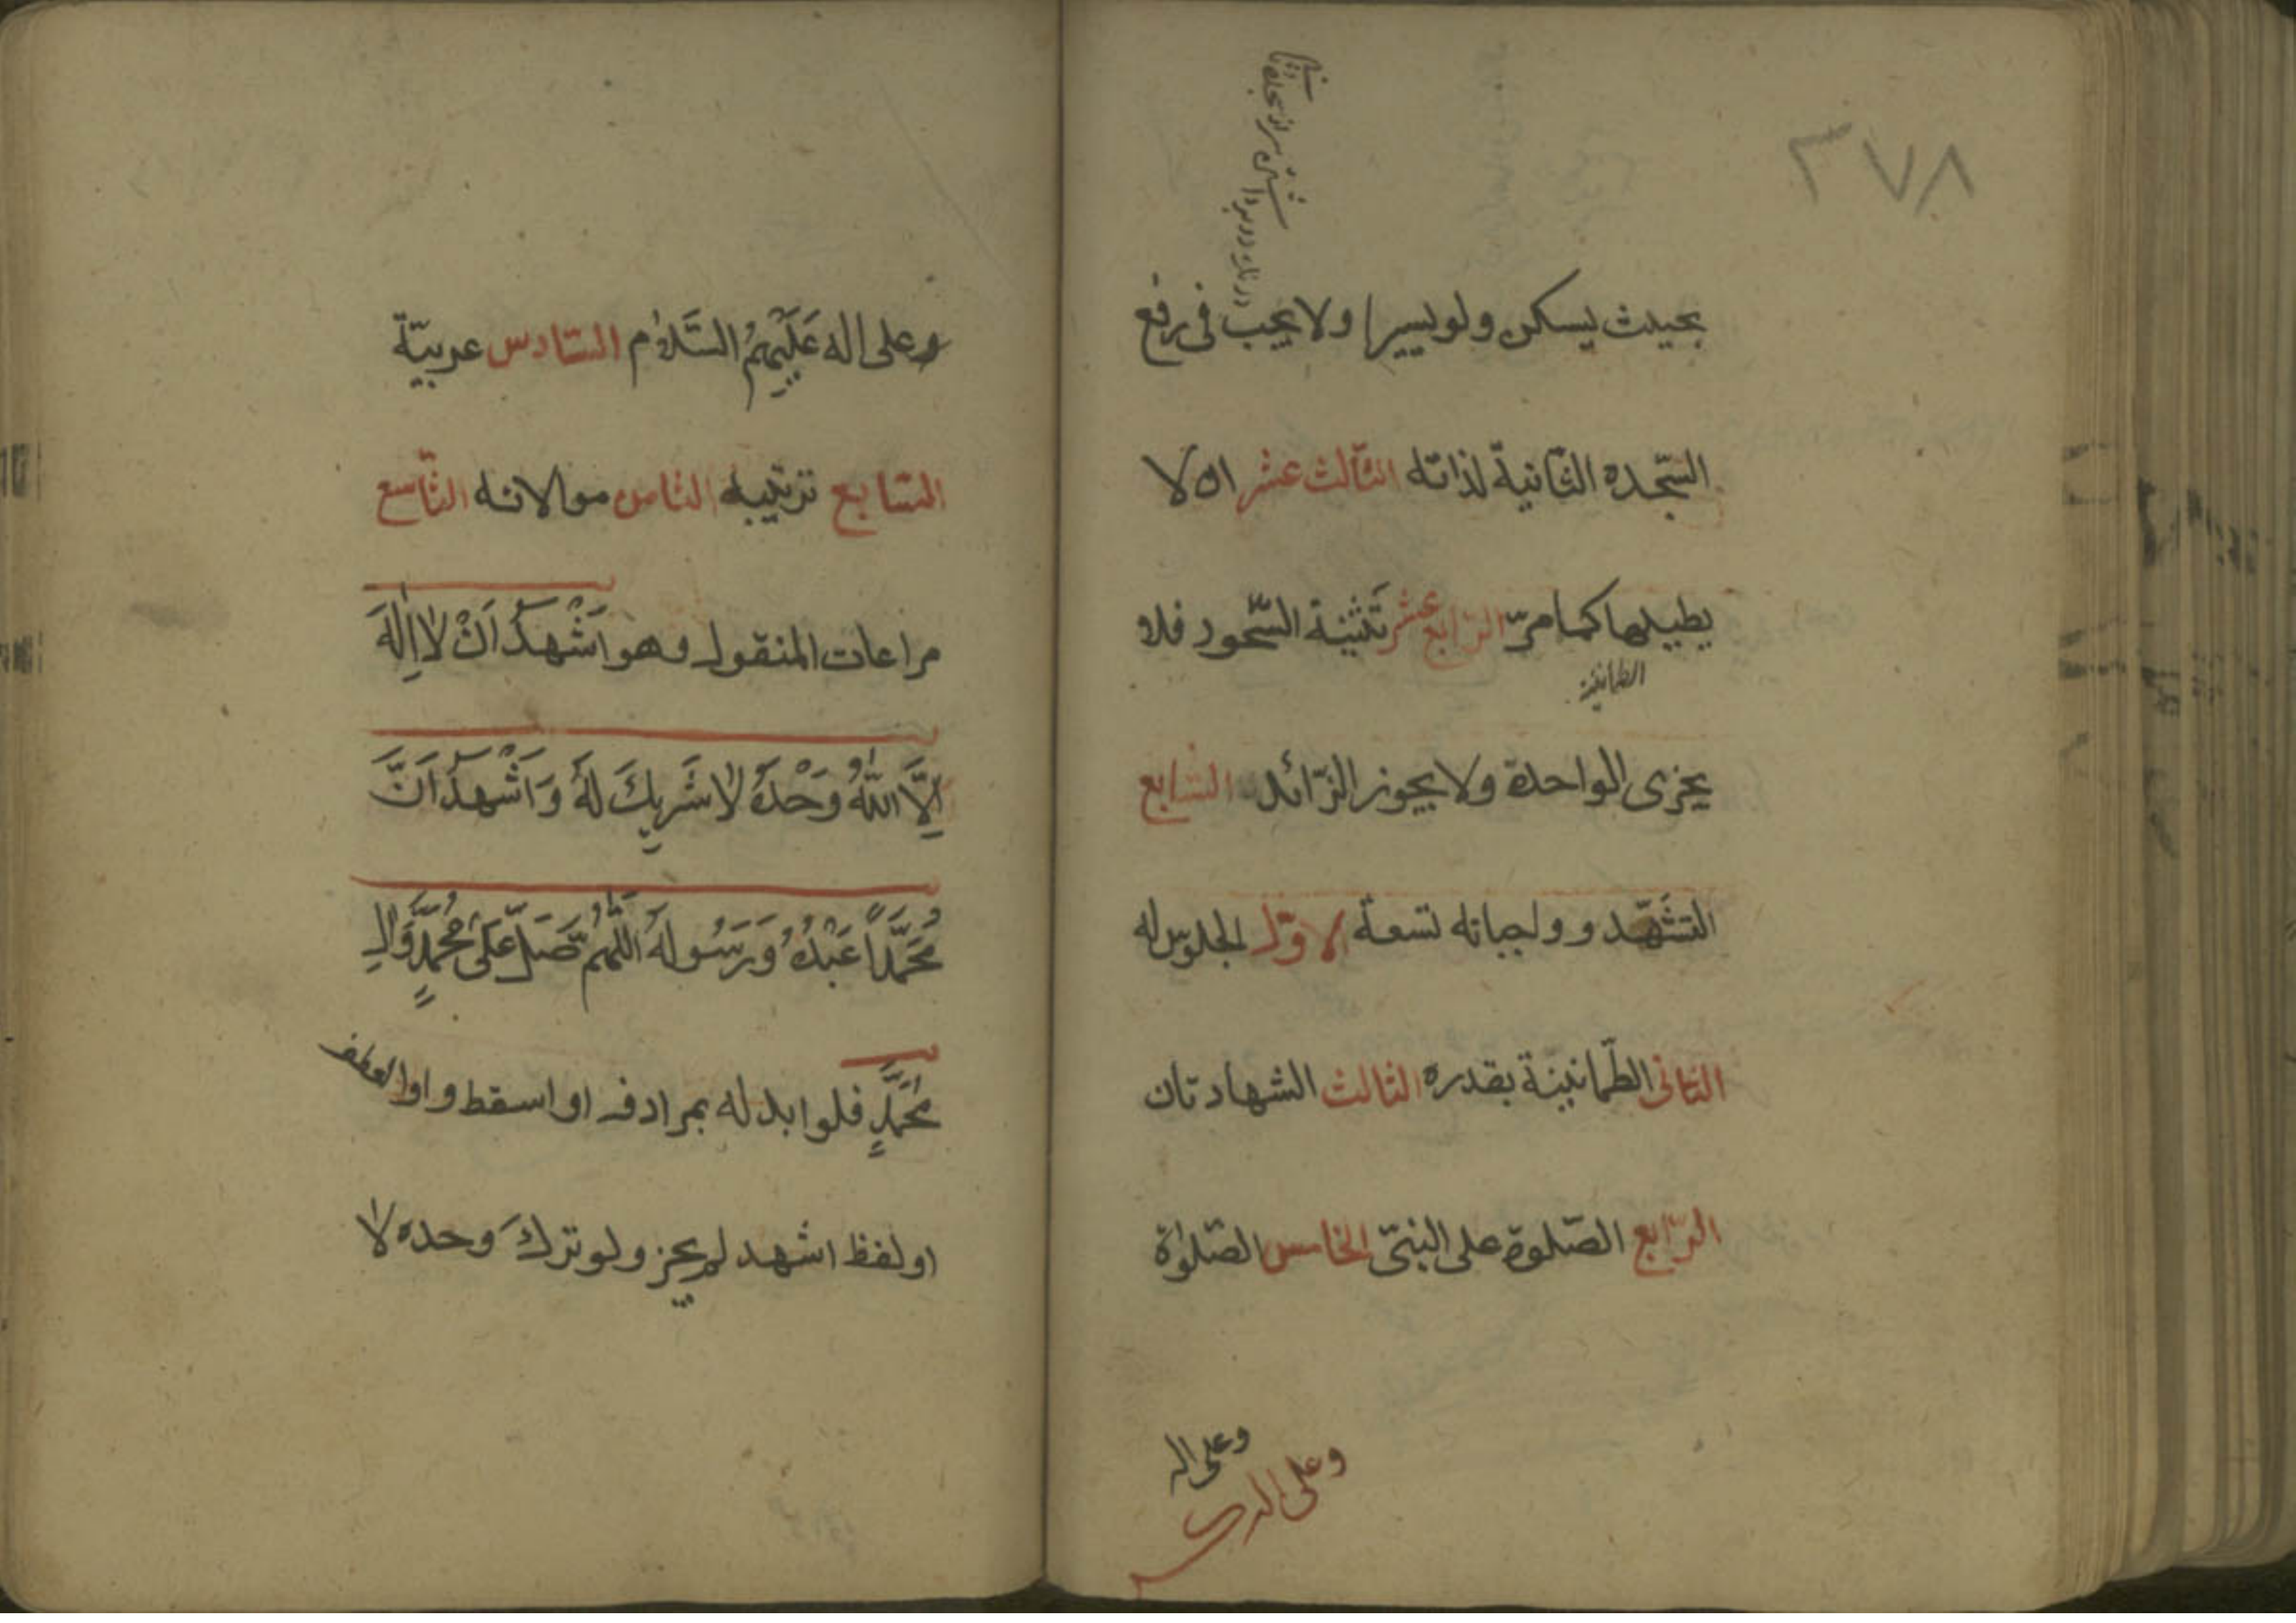 ٣٧٨
بحيث يسكن ولو يسيرا ولا يجب فى رفع
السّجده الثّانية لذاته الثّالث عشر ان لا
يطيلها كما مرّ الرّابع عشر تَثنية السّجود فلا
الطمانينة
يجزى الواحدة ولا يجوز الزّائد السّابع
التشَهّد وواجباته تسعة الاوّل الجلوس له
الثانى الطّمانينة بقدره الثالث الشهادتان
الرّابع الصّلوة على النبىّ الخامس الصّلوٰة
وعلى اله
وعلى اله
وعلى اله عَلَيْهِمُ السَّلٰام السّادس عربيّة
السّابع ترتيبه الثامن موالاته التّاسع
مراعات المنقول وهو اَشْهَدُ اَنْ لٰا اِلٰهَ
اِلَّا اللّٰهُ وَحْدَهُ لٰا شَرِيكَ لَهُ وَاَشْهَدُ اَنَّ
مُحَمَّداً عَبْدُهُ وَرَسُولُهُ اَللّٰهُمَّ صَلِّ عَلىٰ مُحَمَّدٍ وَالِ
مُحَمَّدٍ فلو ابدله بمرادفه او اسقط واو العطف
او لفظ اشهد لم يجز ولو ترك وحده لٰا